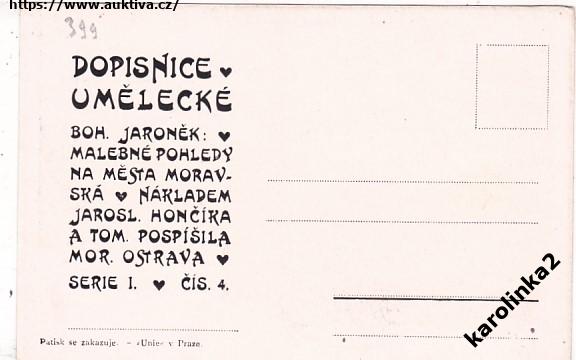 https://www.auktiva.cz/
399
DOPISNICE ♥
UMĚLECKÉ
BOH. JARONĚK: ♥
MALEBNÉ POHLEDY
NA MĚSTA MORAV-
SKÁ ♥ NÁKLADEM
JAROSL. HONČÍKA
A TOM. POSPÍŠILA
MOR. OSTRAVA ♥
SERIE I. ♥ ČÍS. 4.
Patisk se zakazuje. – »Unie« v Praze.
karolinka2